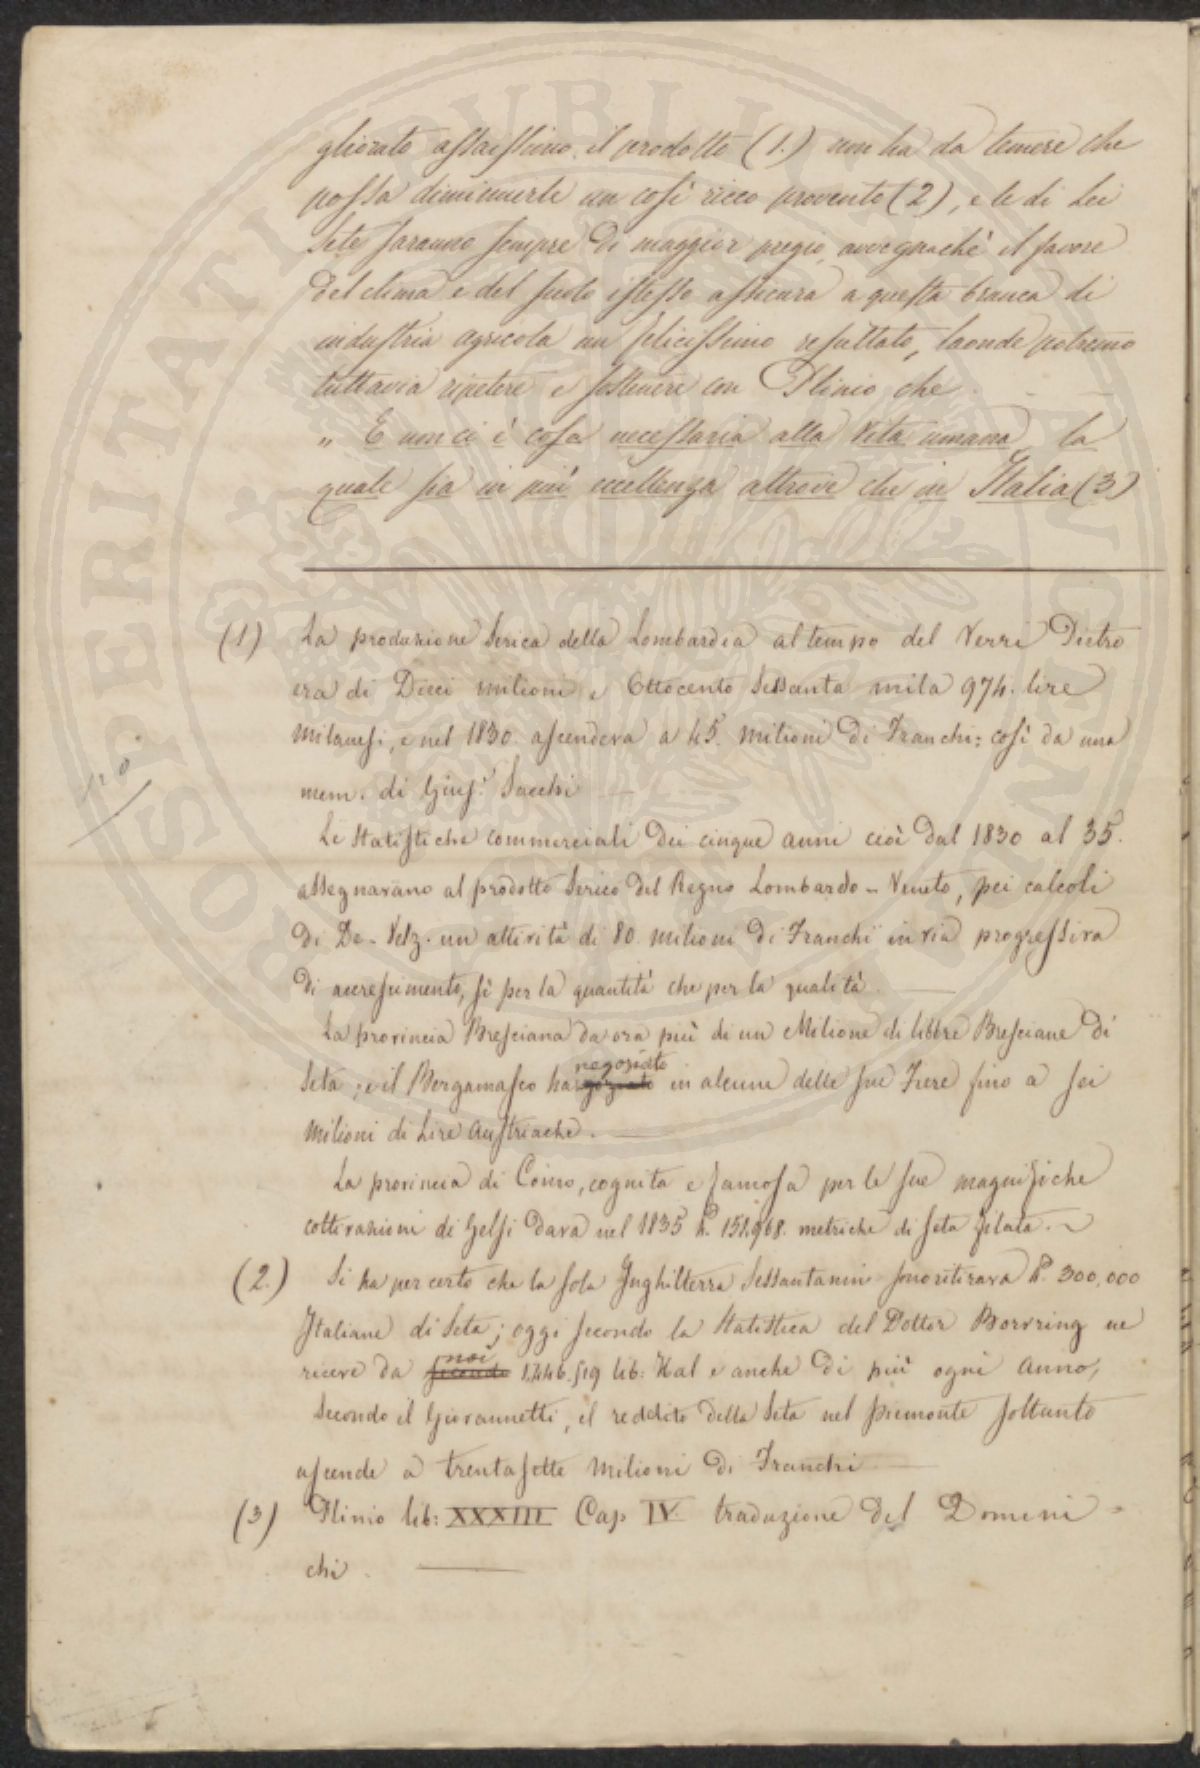 gliorato assaissimo il prodotto (1.) non ha da temere che
possa diminuirle un così ricco provento (2), e le di Lei
Sete saranno sempre di maggior pregio, avvegnachè il favore
del clima e del suolo istesso assicura a questa branca di
industria agricola un felicissimo resultato, laonde potremo
tuttavia ripetere e sostenere con Plinio che
„ E non ci è cosa necessaria alla Vita umana la
quale sia in più eccellenza altrove che in Italia (3)
(1) La produzione Serica della Lombardia al tempo del Verri Pietro
era di Dieci milioni e Ottocento Sessanta mila 974. lire
Milanesi, e nel 1830. ascendeva a 45. milioni di Franchi; così da una
mem. di Gius.e Sacchi
Le Statistiche commerciali dei cinque anni cioè dal 1830 al 35.
assegnavano al prodotto Serico del Regno Lombardo-Veneto, pei calcoli
di De-Velz. un attività di 80. milioni di Franchi in via progressiva
di accrescimento, sì per la quantità che per la qualità.
La provincia Bresciana da ora più di un Milione di libbre Bresciane di
Seta; e il Bergamasco ha negoziato in alcune delle sue Fiere fino a sei
Milioni di Lire Austriache.
La provincia di Como, cognita e famosa per le sue magnifiche
coltivazioni di Gelsi dava nel 1835 151,968. metriche di seta filata.
(2.) Si ha per certo che la sola Inghilterra Sessantanni sono ritirava 300,000
Italiane di Seta; oggi secondo la Statistica del Dottor Bowring ne
riceve da noi 1,446.519 lib: Ital e anche di più ogni anno,
Secondo il Giovannetti, il reddito della Seta nel Piemonte soltanto
ascende a trentasette Milioni di Franchi
(3) Plinio lib: XXXIII Cap IV. traduzione del Domeni=
chi.
PROSPERITATI PUBLICAE AUGENDAE